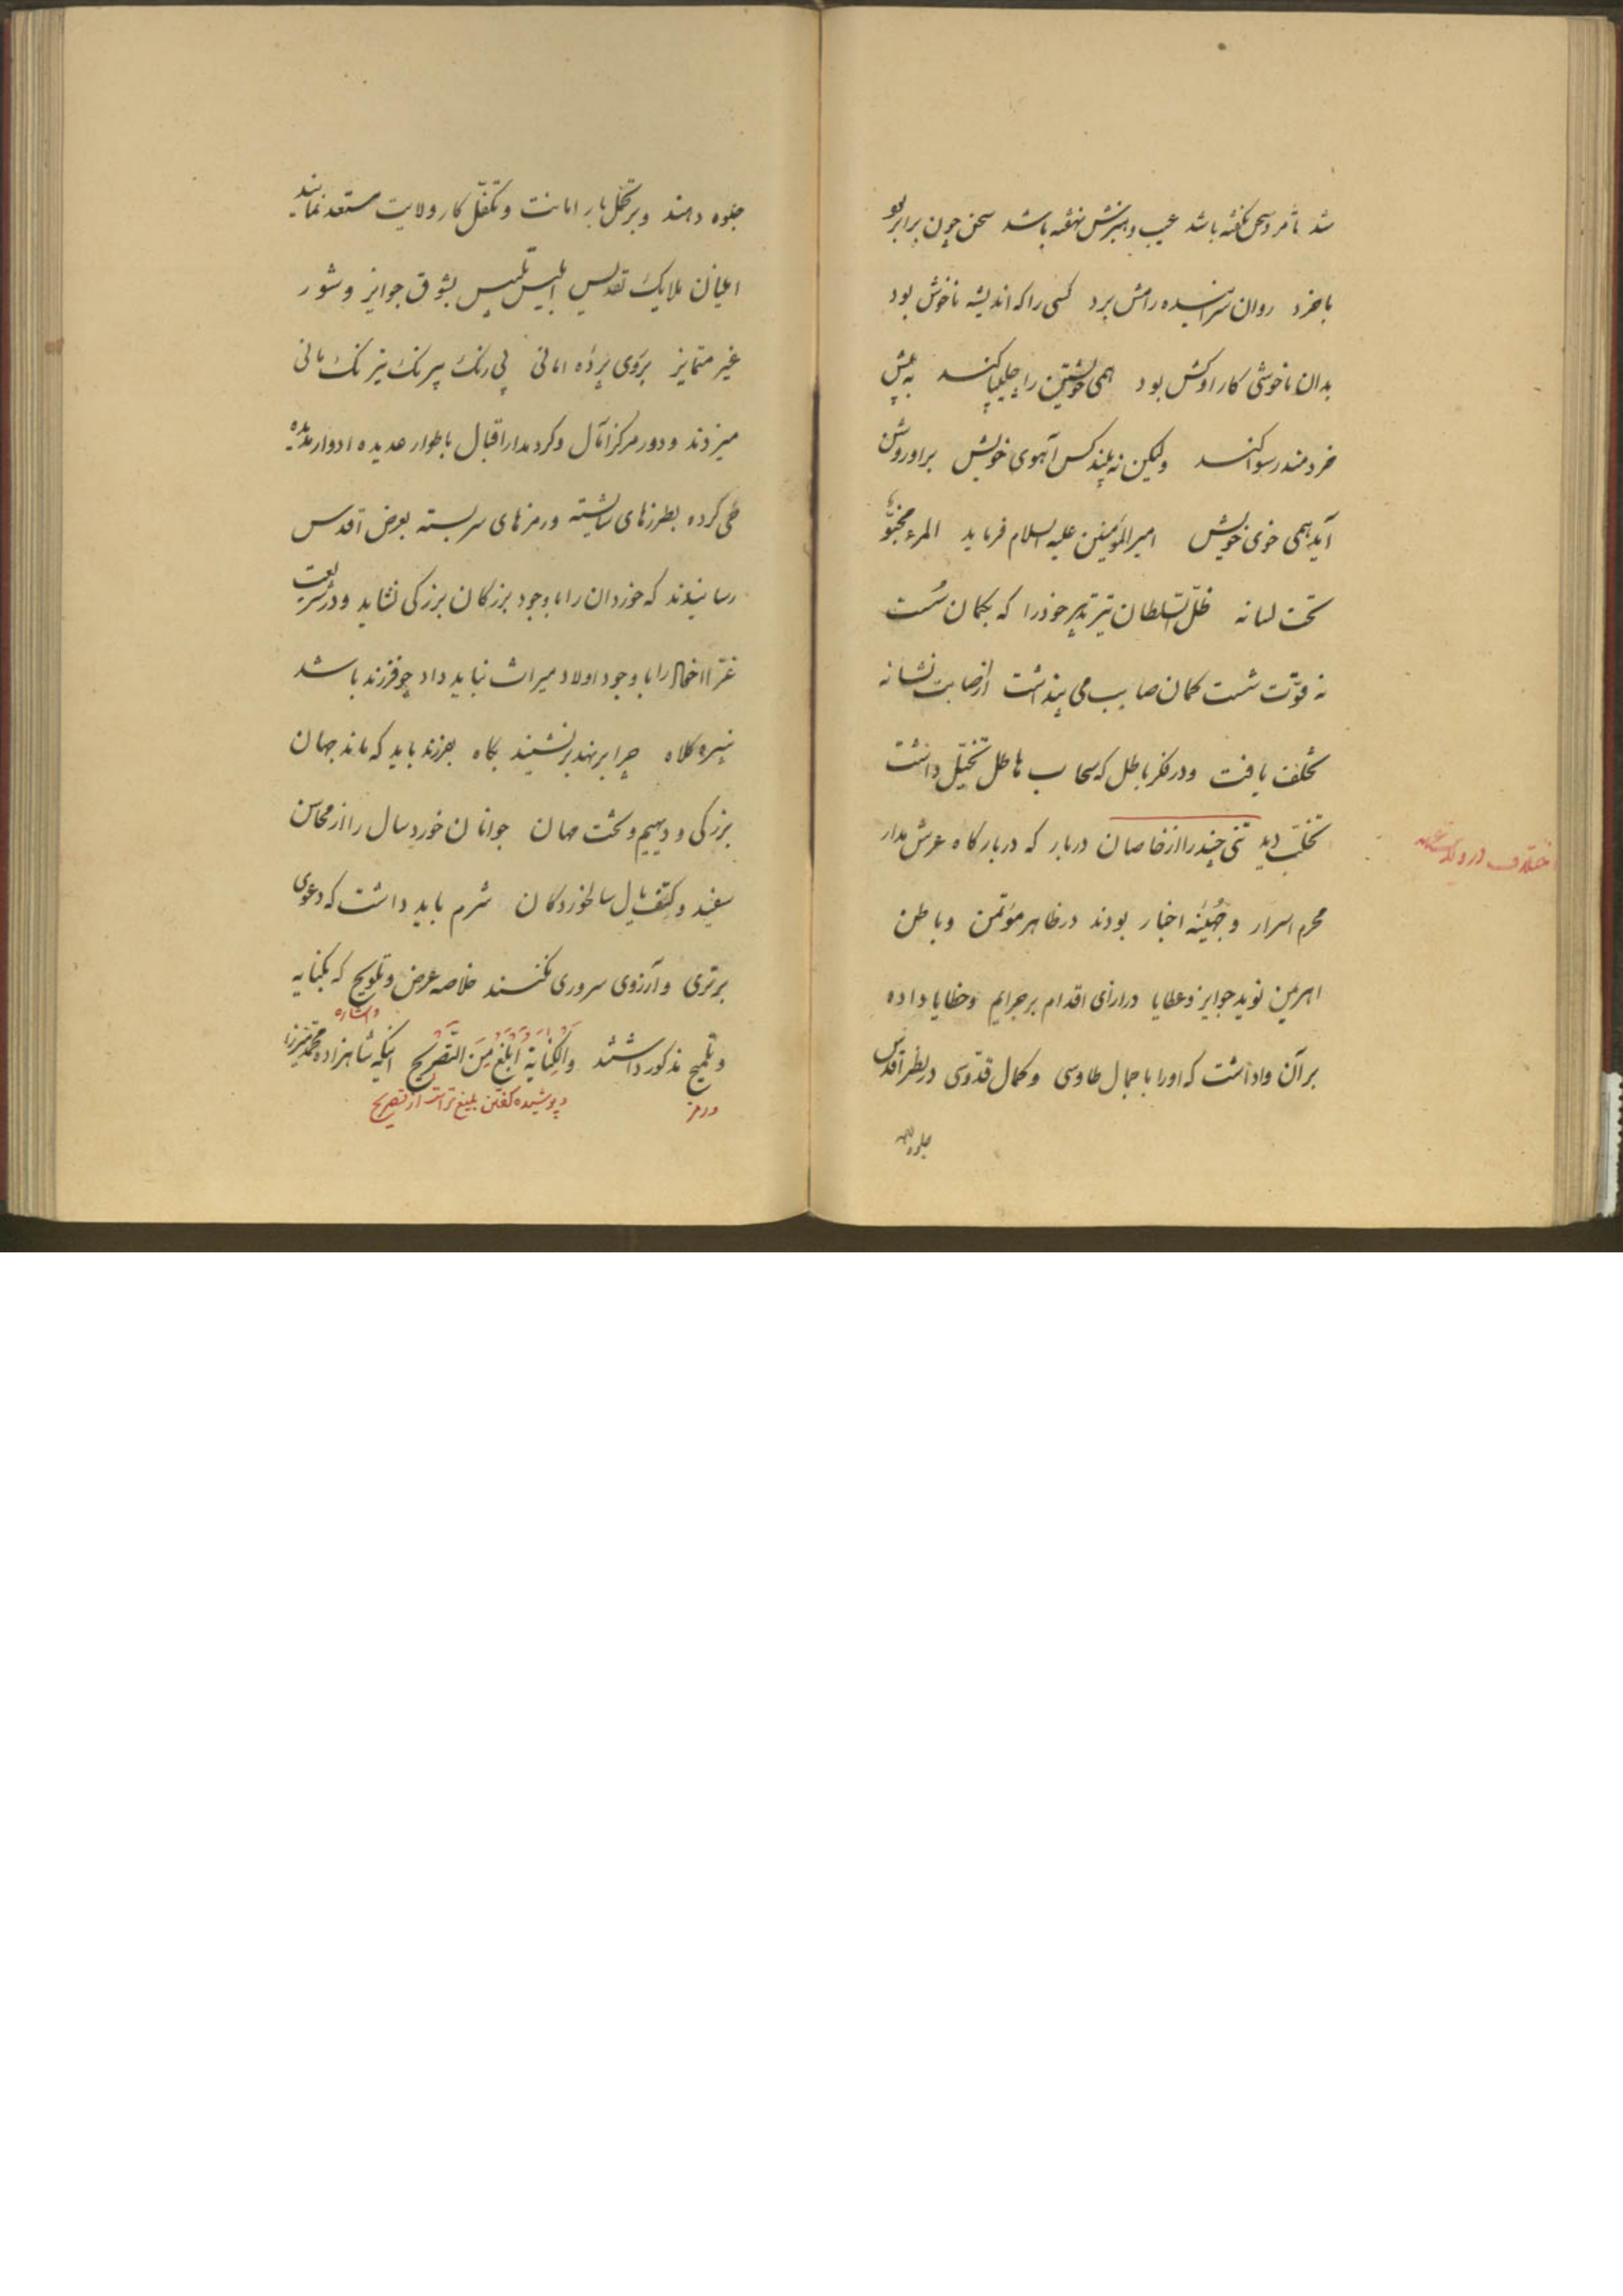 شد تا مرد سخن نگفته باشد عیب و هنرش نهفته باشد سخن چون برابر بود
با خرد روان سراینده رامش برد کسی را که اندیشه ناخوش بود
بدان ناخوشی کار او کش بود همی خویشتن را چلیپا کند به پیش
خردمند رسوا کند ولیکن نه بیند کس آهوی خویش برا و روشن
آید همی خوی خویش امیرالمؤمنین علیه السلام فرماید المرء مخبوّ
تحت لسانه ظلّ السلطان تیر تدبیر خود را که بکمان سست
نه قوّت شست کمان صایب می پنداشت از اصابت نشانه
تخلف یافت و در فکر باطل که سحاب هاطل تخیّل داشت
تخلّب دید تنی چند را از خاصان دربار که در بارگاه عرش مدار
اختلاف در ولایت عهد
محرم اسرار و جهینه اخبار بودند در ظاهر مؤتمن و باطن
اهرمن نوید جوایز و عطایا در ازای اقدام بر جرایم و خطایا داده
بر آن واداشت که او را با جمال طاوسی و کمال قدّوسی در نظر اقدس
جلوه دهند
جلوه دهند و بر تحمّل بار امانت و تکفّل کار ولایت مستعد نمایند
اعیان ملایک تقدیس ابلیس تلبیس بشوق جوایز و شور
غیر متمایز بروی پرده امانی پی رنگ پیرنگ نیرنگ مانی
میزدند و دور مرکز آمال و گرد مدار اقبال باطوار عدیده ادوار مدیده
طی کرده بطرزهای شایسته و رمزهای سربسته بعرض اقدس
رسانیدند که خوردان را با وجود بزرگان بزرگی نشاید و در شریعت
غرّا اخفاد را با وجود اولاد میراث نباید داد چو فرزند باشد
نبیره کلاه چرا بر نهد بر نشیند بگاه بفرزند باید که ماند جهان
بزرگی و دیهیم و تخت مهان جوانان خورد سال را از محاسن
سفید و کتف و یال سالخوردگان شرم باید داشت که دعوی
برتری و آرزوی سروری نکنند خلاصه عرض و تلویح که بکنایه
و اشاره
و تلمیح مذکور داشتند والکِنایَة اَبلَغ مِنَ التّصریح اینکه شاهزاده محمد میرزا
و رمز
و پوشیده گفتن بلیغ تر است از تصریح